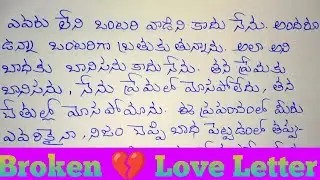 ఎవరు లేని ఒంటరి వాడిని కాదు నేను. అందరూ
ఉన్నా ఒంటరిగా బ్రతుకు తున్నాను. అలా అని
బాధకు బానిసను కాదు నేను. తన ప్రేమకు
బానిసను, నేను ప్రేమలో మోసపోలేదు, తన
చేతుల్లో మోస పోయాను. ఈ ప్రపంచంలో మీరు
ఎవరికైనా, నిజం చెప్పి బాధ పెట్టడంలో తప్పు-
Broken 💔 Love Letter